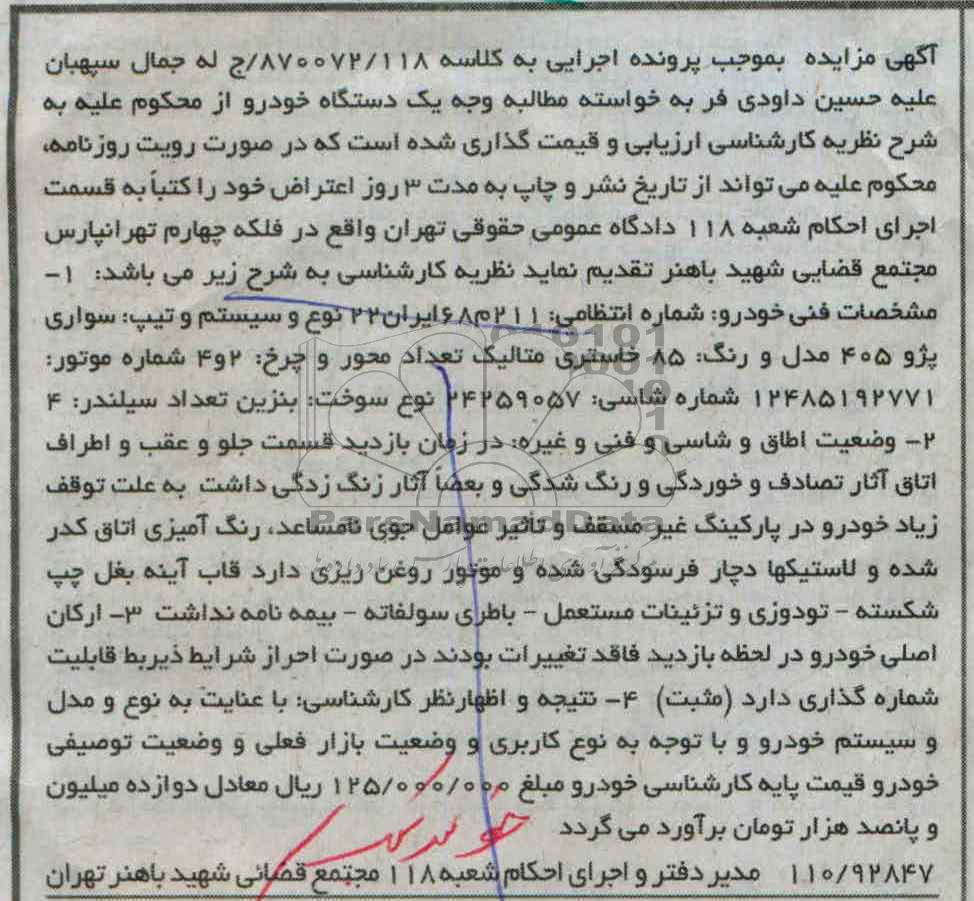 آگهی مزایده بموجب پرونده اجرایی به کلاسه ۸۷۰۰۷۲/۱۱۸/ج له جمال سپهبان
علیه حسین داودی فر به خواسته مطالبه وجه یک دستگاه خودرو از محکوم علیه به
شرح نظریه کارشناسی ارزیابی و قیمت گذاری شده است که در صورت رویت روزنامه،
محکوم علیه می تواند از تاریخ نشر و چاپ به مدت ۳ روز اعتراض خود را کتباً به قسمت
اجرای احکام شعبه ۱۱۸ دادگاه عمومی حقوقی تهران واقع در فلکه چهارم تهرانپارس
مجتمع قضایی شهید باهنر تقدیم نماید نظریه کارشناسی به شرح زیر می باشد: ۱-
مشخصات فنی خودرو: شماره انتظامی: ۲۱۱م۶۸ایران۲۲ نوع و سیستم و تیپ: سواری
پژو ۴۰۵ مدل و رنگ: ۸۵ خاستری متالیک تعداد محور و چرخ: ۲و۴ شماره موتور:
۱۲۴۸۵۱۹۲۷۷۱ شماره شاسی: ۲۴۲۵۹۰۵۷ نوع سوخت: بنزین تعداد سیلندر: ۴
۲- وضعیت اطاق و شاسی و فنی و غیره: در زمان بازدید قسمت جلو و عقب و اطراف
اتاق آثار تصادف و خوردگی و رنگ شدگی و بعضاً آثار زنگ زدگی داشت به علت توقف
زیاد خودرو در پارکینگ غیر مسقف و تاثیر عوامل جوی نامساعد، رنگ آمیزی اتاق کدر
ParsNamadData
شده و لاستیکها دچار فرسودگی شده و موتور روغن ریزی دارد قاب آینه بغل چپ
شکسته - تودوزی و تزئینات مستعمل - باطری سولفاته - بیمه نامه نداشت ۳- ارکان
اصلی خودرو در لحظه بازدید فاقد تغییرات بودند در صورت احراز شرایط ذیربط قابلیت
شماره گذاری دارد (مثبت) ۴- نتیجه و اظهارنظر کارشناسی: با عنایت به نوع و مدل
و سیستم خودرو و با توجه به نوع کاربری و وضعیت بازار فعلی و وضعیت توصیفی
خودرو قیمت پایه کارشناسی خودرو مبلغ ۱۲۵/۰۰۰/۰۰۰ ریال معادل دوازده میلیون
و پانصد هزار تومان برآورد می گردد
۱۱۰/۹۲۸۴۷ مدیر دفتر و اجرای احکام شعبه ۱۱۸ مجتمع قضائی شهید باهنر تهران